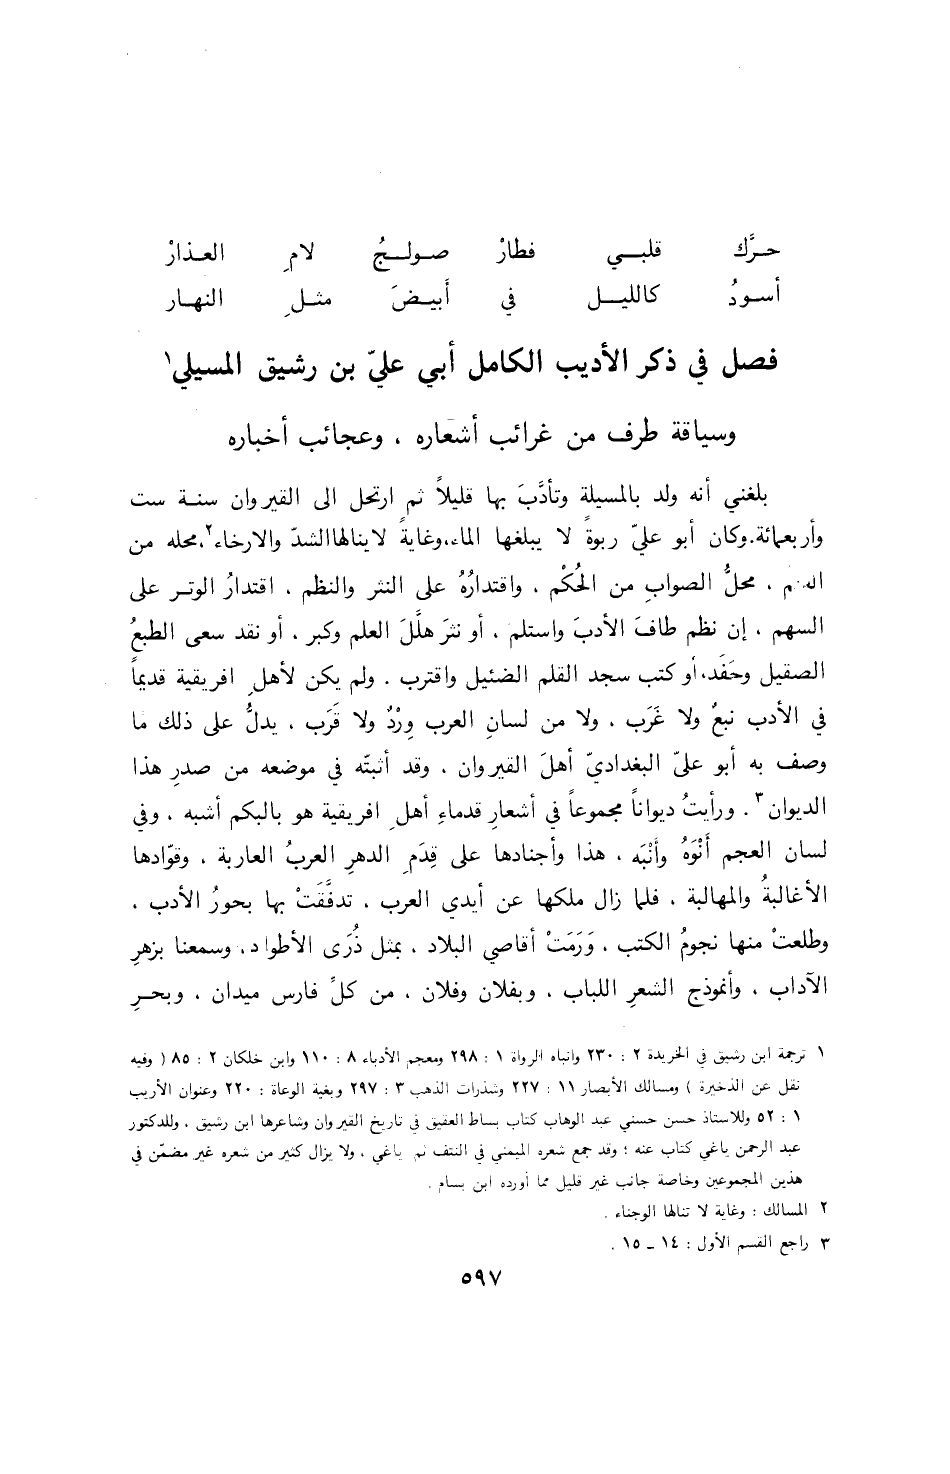 حرَّك قلبي فطارْ صولجُ لامِ العذارْ
أسودُ كالليل في أبيضَ مثلِ النهار
فصل في ذكر الأديب الكامل أبي عليّ بن رشيق المسيلي١
وسياقة طرف من غرائب أشعاره ، وعجائب أخباره
بلغني أنه ولد بالمسيلة وتأدَّبَ بها قليلاً ثم ارتحل الى القيروان سنة ست
وأربعمائة.وكان أبو عليّ ربوةً لا يبلغها الماء،وغايةً لاينالهاالشدّ والارخاء٢،محله من
، محلُّ الصوابِ من الحُكْم ، واقتدارُهُ على النثر والنظم ، اقتدارُ الوتر على
السهم ، إن نظم طافَ الأدبَ واستلم ، أو نثرَ هلَّلَ العلم وكبر ، أو نقد سعى الطبعُ
الصقيل وحَفَد،أو كتب سجد القلم الضئيل واقترب . ولم يكن لأهلِ افريقية قديماً
في الأدب نبعٌ ولا غَرَب ، ولا من لسانِ العرب وِرْدٌ ولا قَرَب ، يدلُّ على ذلك ما
وصف به أبو عليّ البغداديّ أهلَ القيروان ، وقد أثبتّه في موضعه من صدرِ هذا
الديوان٣ . ورأيتُ ديواناً مجموعاً في أشعارِ قدماءِ أهلِ افريقية هو بالبكم أشبه ، وفي
لسان العجم أَنْوَهُ وأَنْبَه ، هذا وأجنادها على قِدَمِ الدهرِ العربُ العاربة ، وقوّادها
الأغالبةُ والمهالبة ، فلما زال ملكها عن أيدي العرب ، تدفَّقَتْ بها بحورُ الأدب ،
وطلعتْ منها نجومُ الكتب ، وَرَمَتْ أقاصي البلاد ، بمثل ذُرَى الأطواد، وسمعنا بزهرِ
الآداب ، وأنموذج الشعرِ اللباب ، وبفلان وفلان ، من كلِّ فارس ميدان ، وبحرِ
١ ترجمة ابن رشيق في الخريدة ٢ : ٢٣٠ وانباه الرواة ١ : ٢٩٨ ومعجم الأدباء ٨ : ١١٠ وابن خلكان ٢ : ٨٥ ( وفيه
نقل عن الذخيرة ) ومسالك الأبصار ١١ : ٢٢٧ وشذرات الذهب ٣ : ٢٩٧ وبغية الوعاة : ٢٢٠ وعنوان الأريب
١ : ٥٢ وللاستاذ حسن حسني عبد الوهاب كتاب بساط العقيق في تاريخ القيروان وشاعرها ابن رشيق ، وللدكتور
عبد الرحمن ياغي كتاب عنه ؛ وقد جمع شعره الميمني في النتف ثم ياغي ، ولا يزال كثير من شعره غير مضمّن في
هذين المجموعين وخاصة جانب غير قليل مما أورده ابن بسام .
٢ المسالك : وغاية لا تنالها الوجناء .
٣ راجع القسم الأول : ١٤ – ١٥ .
٥٩٧